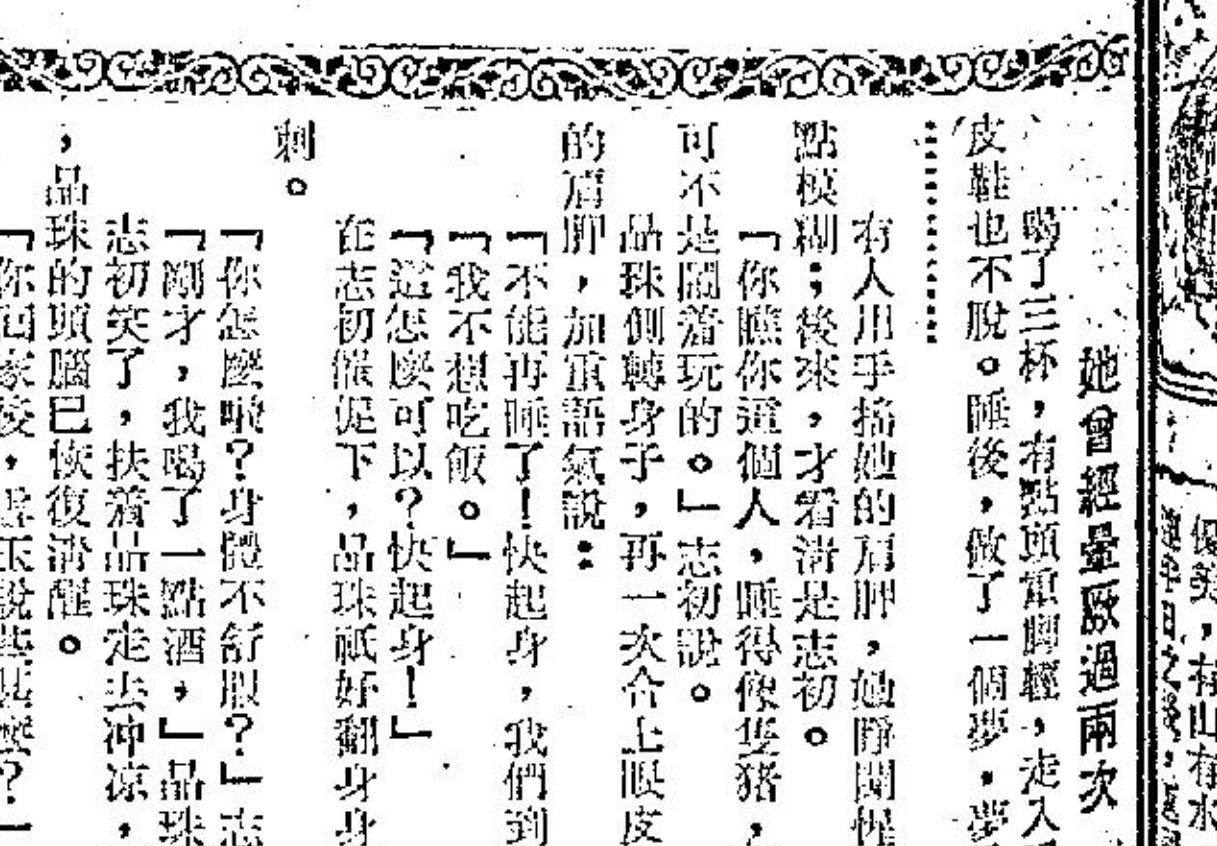 優美，有山有水
她曾經暈厥過兩次
喝了三杯，有點頭重脚輕，走入
皮鞋也不脫。睡後，做了一個夢，夢
有人用手搖她的肩胛，她睜開惺
點模糊；後來，才看清是志初。
「你瞧你這個人，睡得像隻豬，
可不是鬧着玩的。」志初說。
品珠側轉身子，再一次合上眼皮
的肩胛，加重語氣說：
「不能再睡了！快起身，我們到
「我不想吃飯。」
「這怎麼可以？快起身！」
在志初催促下，品珠祇好翻身
刺。
「你怎麼啦？身體不舒服？」志
「剛才，我喝了一點酒，」品珠
志初笑了，扶着品珠走去冲凉，
，品珠的頭腦已恢復清醒。
「你回家後，說些甚麼？」